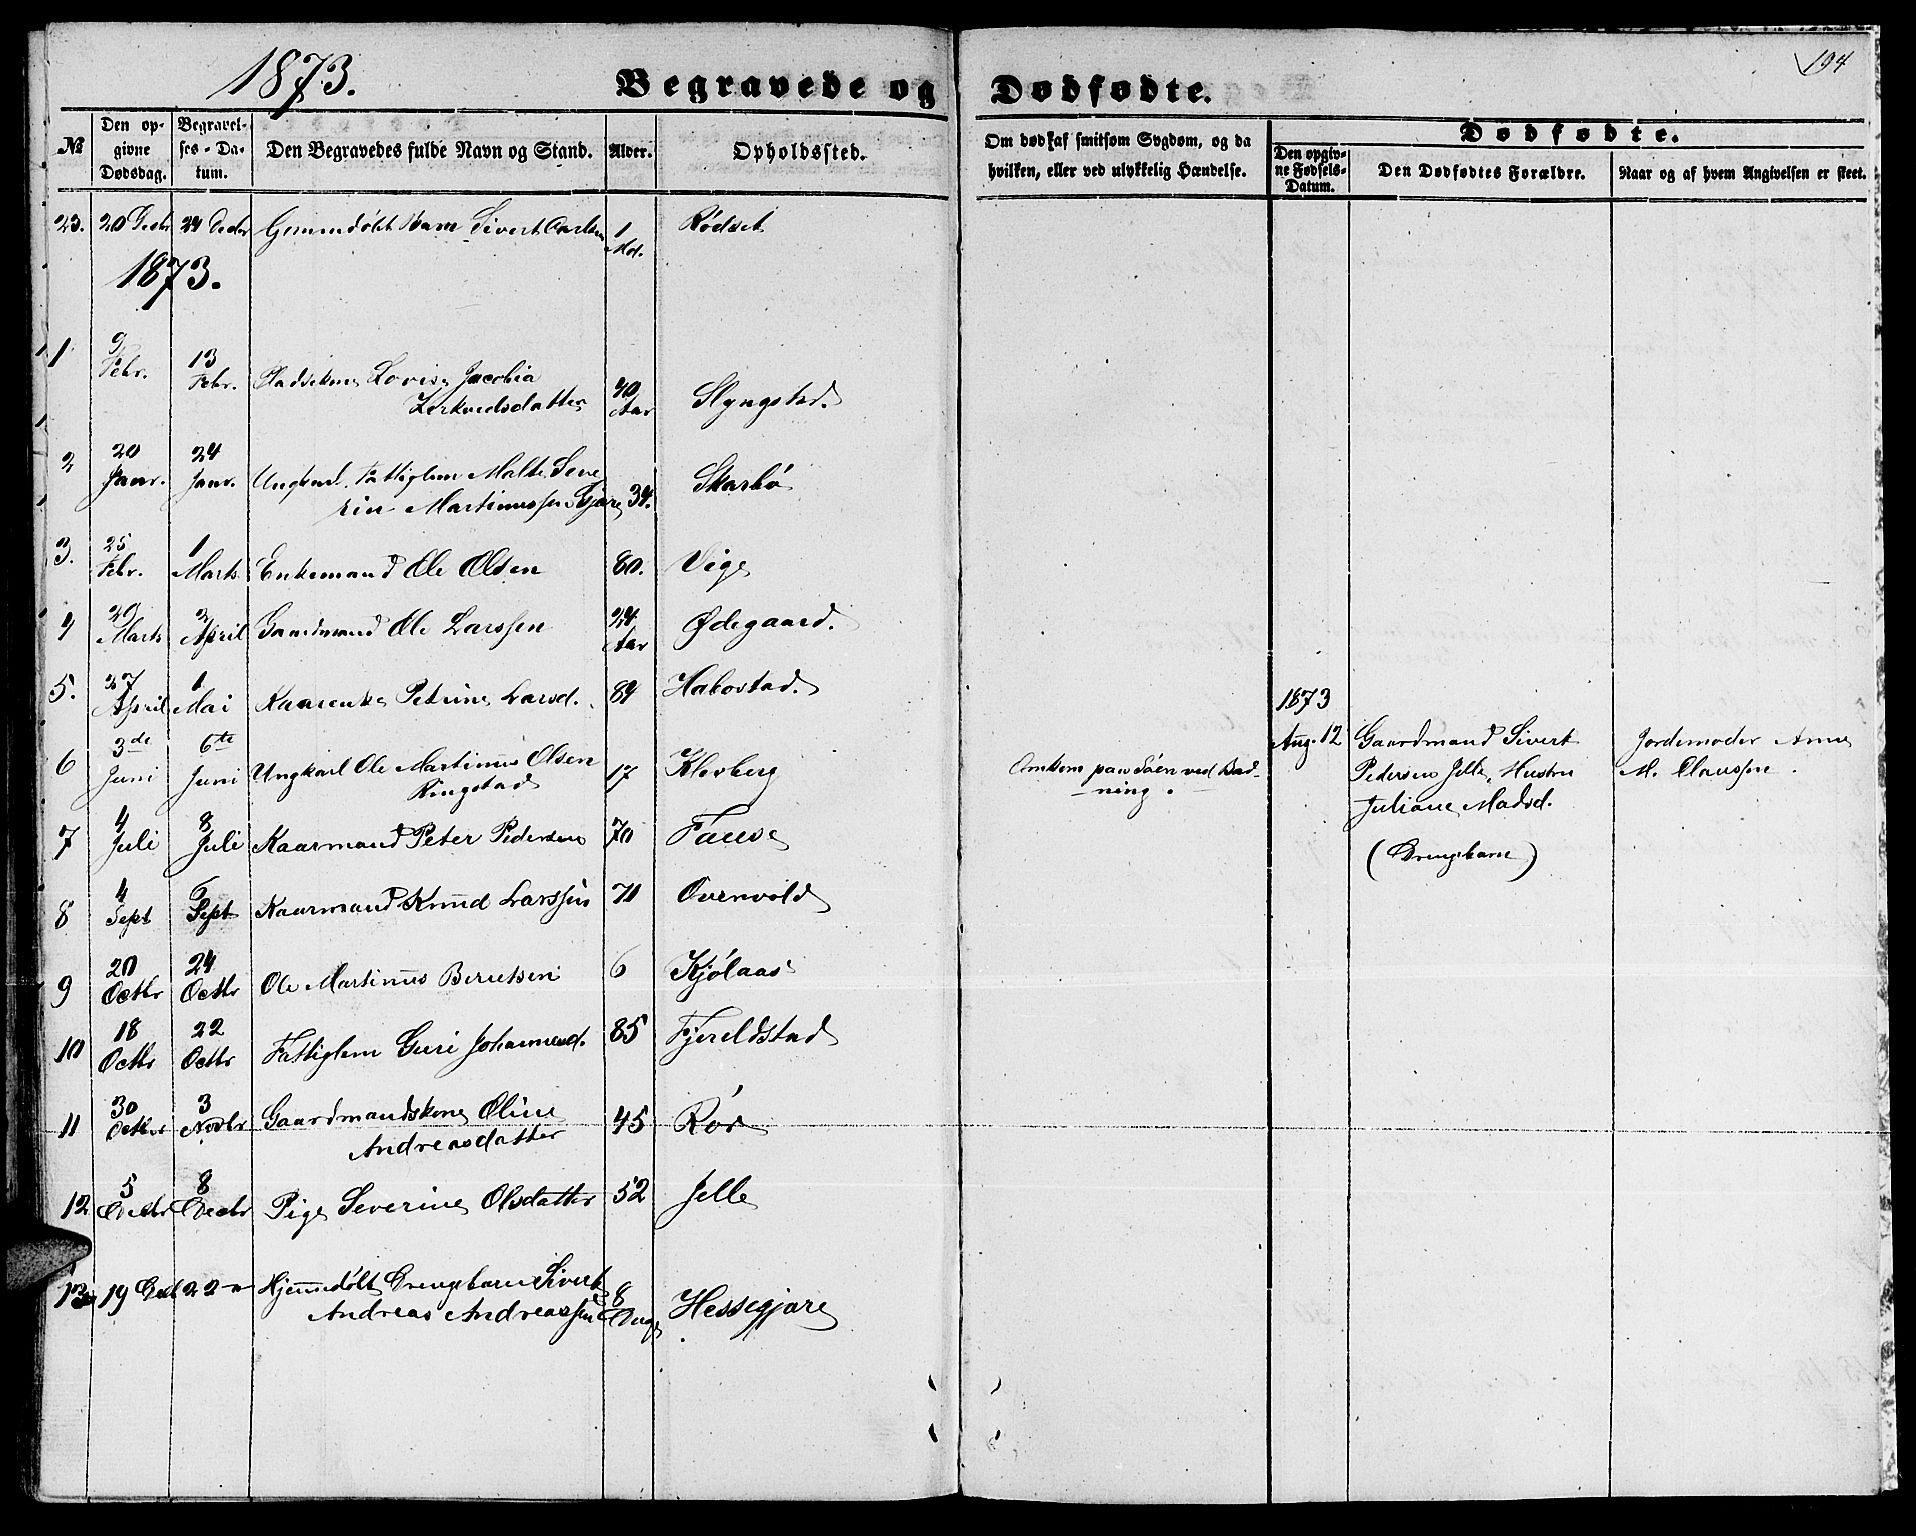 1873.
194
Begravede og Dødfødte.
№
Den opgivne Dødsdag.
Begravelses-Datum.
Den Begravedes fulde Navn og Stand.
Alder.
Opholdssted.
Om død af smitsom Sygdom, og da hvilken, eller ved ulykkelig Hændelse.
Dødfødte.
Den opgivne Fødsels-Datum.
Den Dødfødtes Forældre.
Naar og af hvem Angivelsen er skeet.
23. 20 Decbr 24 Decbr Barn Sivert 1 Md. Rødset
1873.
1 9 Febr. 13 Febr. Lovise Jacobia
40 Aar Slyngstad.
2 20 Janr. 24 Janr. Ungkarl. Fattiglem Malte Seve
rin Martinussen 34. Skarbø
3. 25 Febr. 1 Marts Enkemand Ole Olsen 80. Vige
4 29 Marts 2 April Gaardmand Ole Larssen 24 Aar Ødegaard.
5. 27 April 1 Mai Kaarenke Petrine Larsd. 84 Habostad.
6 3de Juni 6te Juni Ungkarl Ole Martinus Olsen
Ringstad 17 Klovberg Omkom paa Søen ved Bad-
ning.
1873
Aug. 12 Gaardmand Sivert
Pedersen Jelle, Hustru
Juliane Madsd.
(Drengebarn)
Jordemoder Anne
M. Claussen.
7 4 Juli 8 Juli Kaarmand Peter Pedersen 70 Fause
8 4 Sept Sept Kaarmand Knud Larssen 71 Overvold
9 20 Octbr 24 Octbr Ole Martinus Berntsen 6 Kjølaas
10 18 Octbr 22 Octbr Fattiglem Guri Johannesd. 85 Fjeldstad
11 30 Octbr 3 Novbr Gaardmandskone Oline
Andreasdatter 45 Rør
12 5 Decbr 8 Decbr Pige Severine Olsdatter 52 Jelle
13 19 Decb 22 " Hjemmedøbt Drengebarn Sivert
Andreas Andreassen 8 Dage Hessegjøre